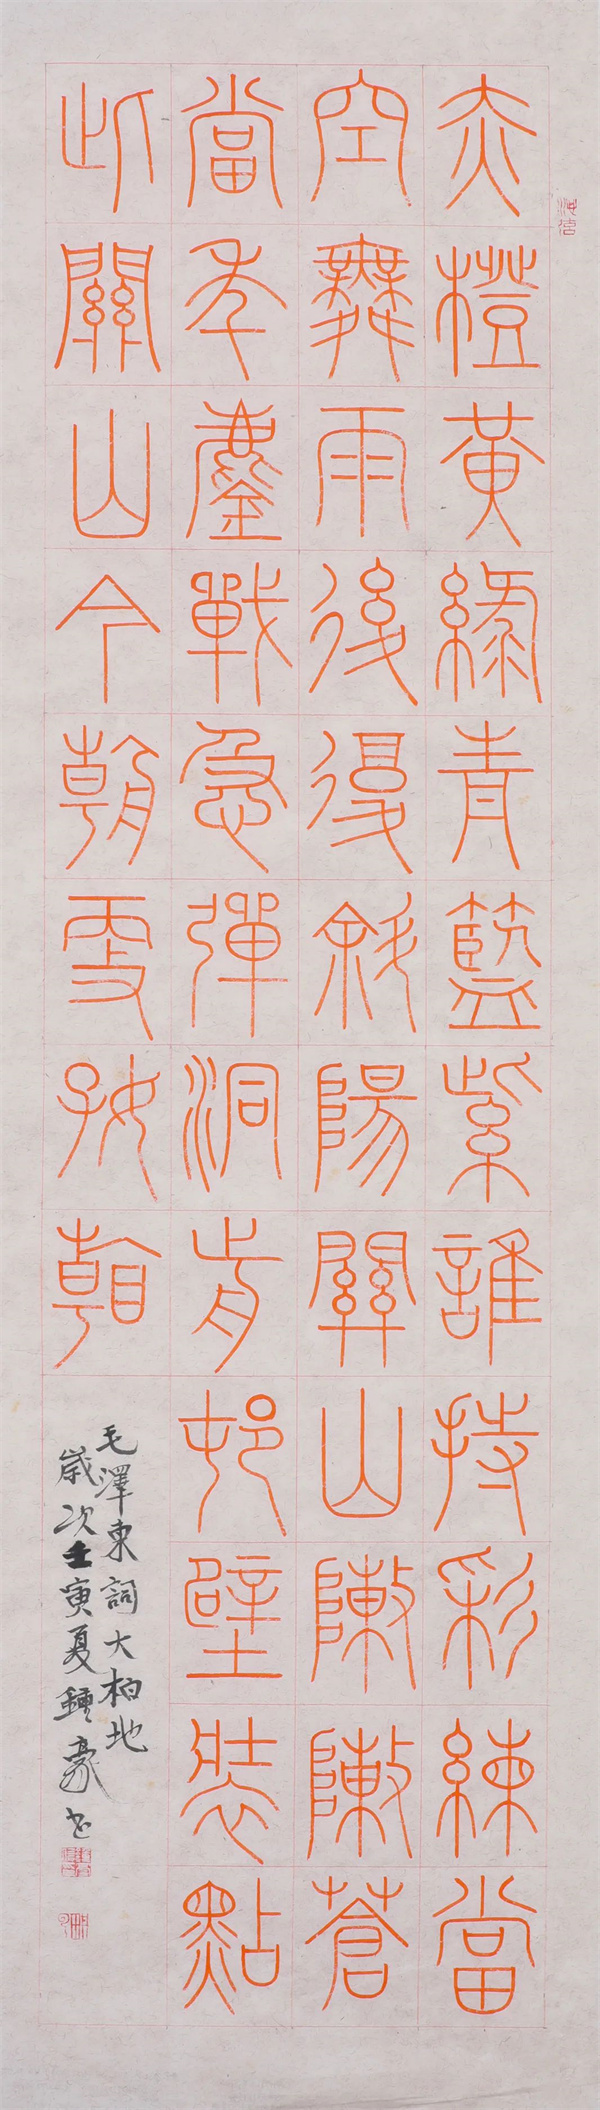 赤橙黃綠青藍紫誰持彩練當
空舞雨後復斜陽關山陣陣蒼
當年鏖戰急彈洞前邨壁裝點
此關山今朝更好看
毛澤東詞大柏地
歲次壬寅夏鍾豪書